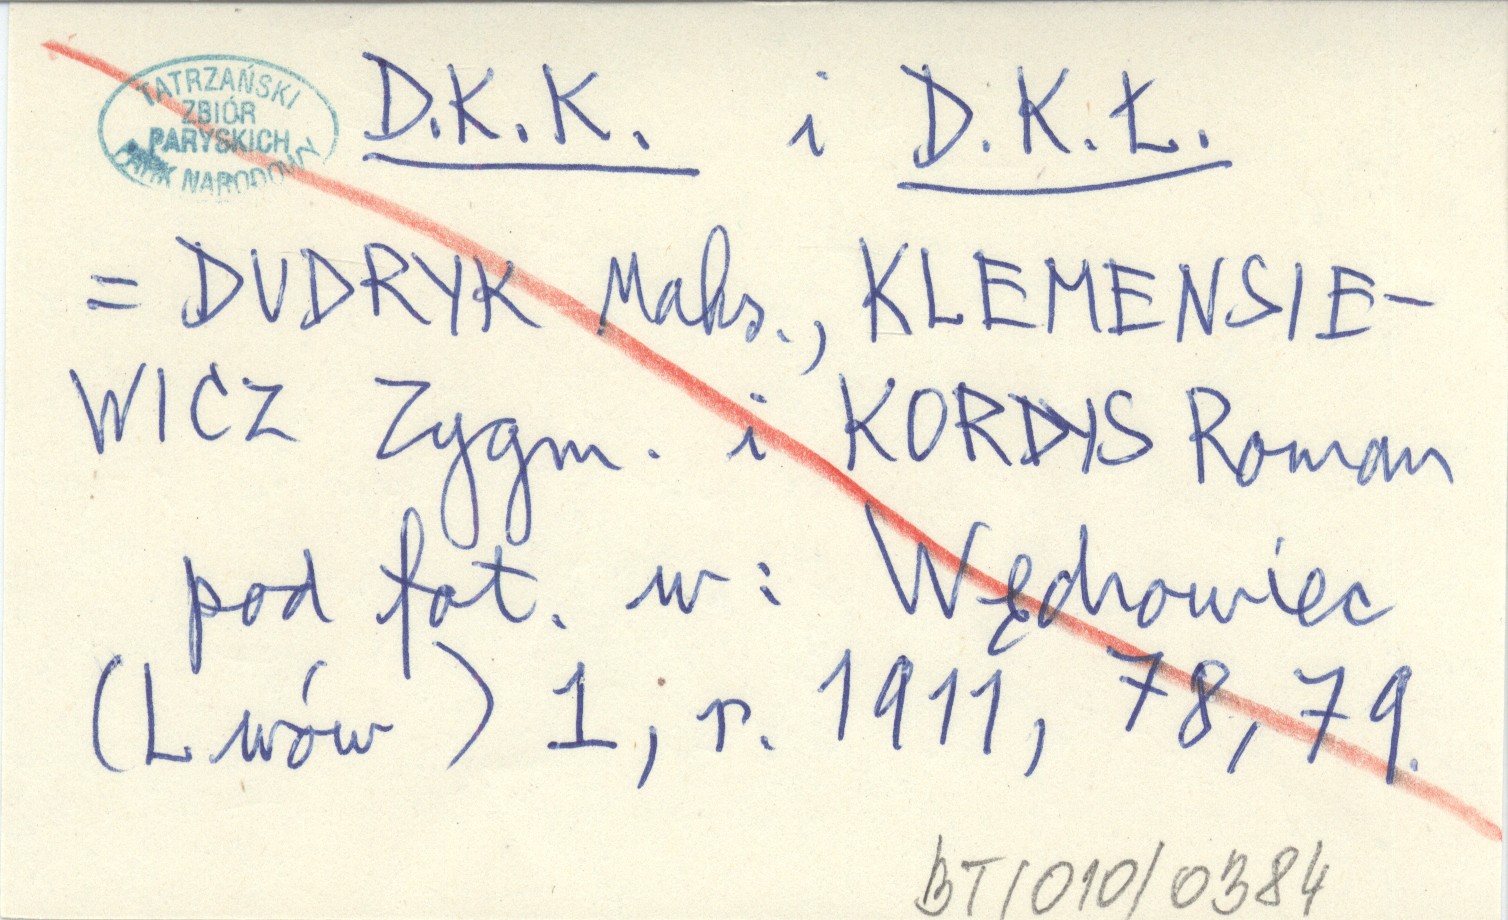 TATRZAŃSKI
ZBIÓR
PARYSKICH
PARK NARODOWY
D.K.K. i D.K.Ł.
= DUDRYK Maks., KLEMENSIE-
WICZ Zygm. i KORDYS Roman
pod fot. w: Wędrowiec
(Lwów) 1, r. 1911, 78, 79.
BT/010/0384